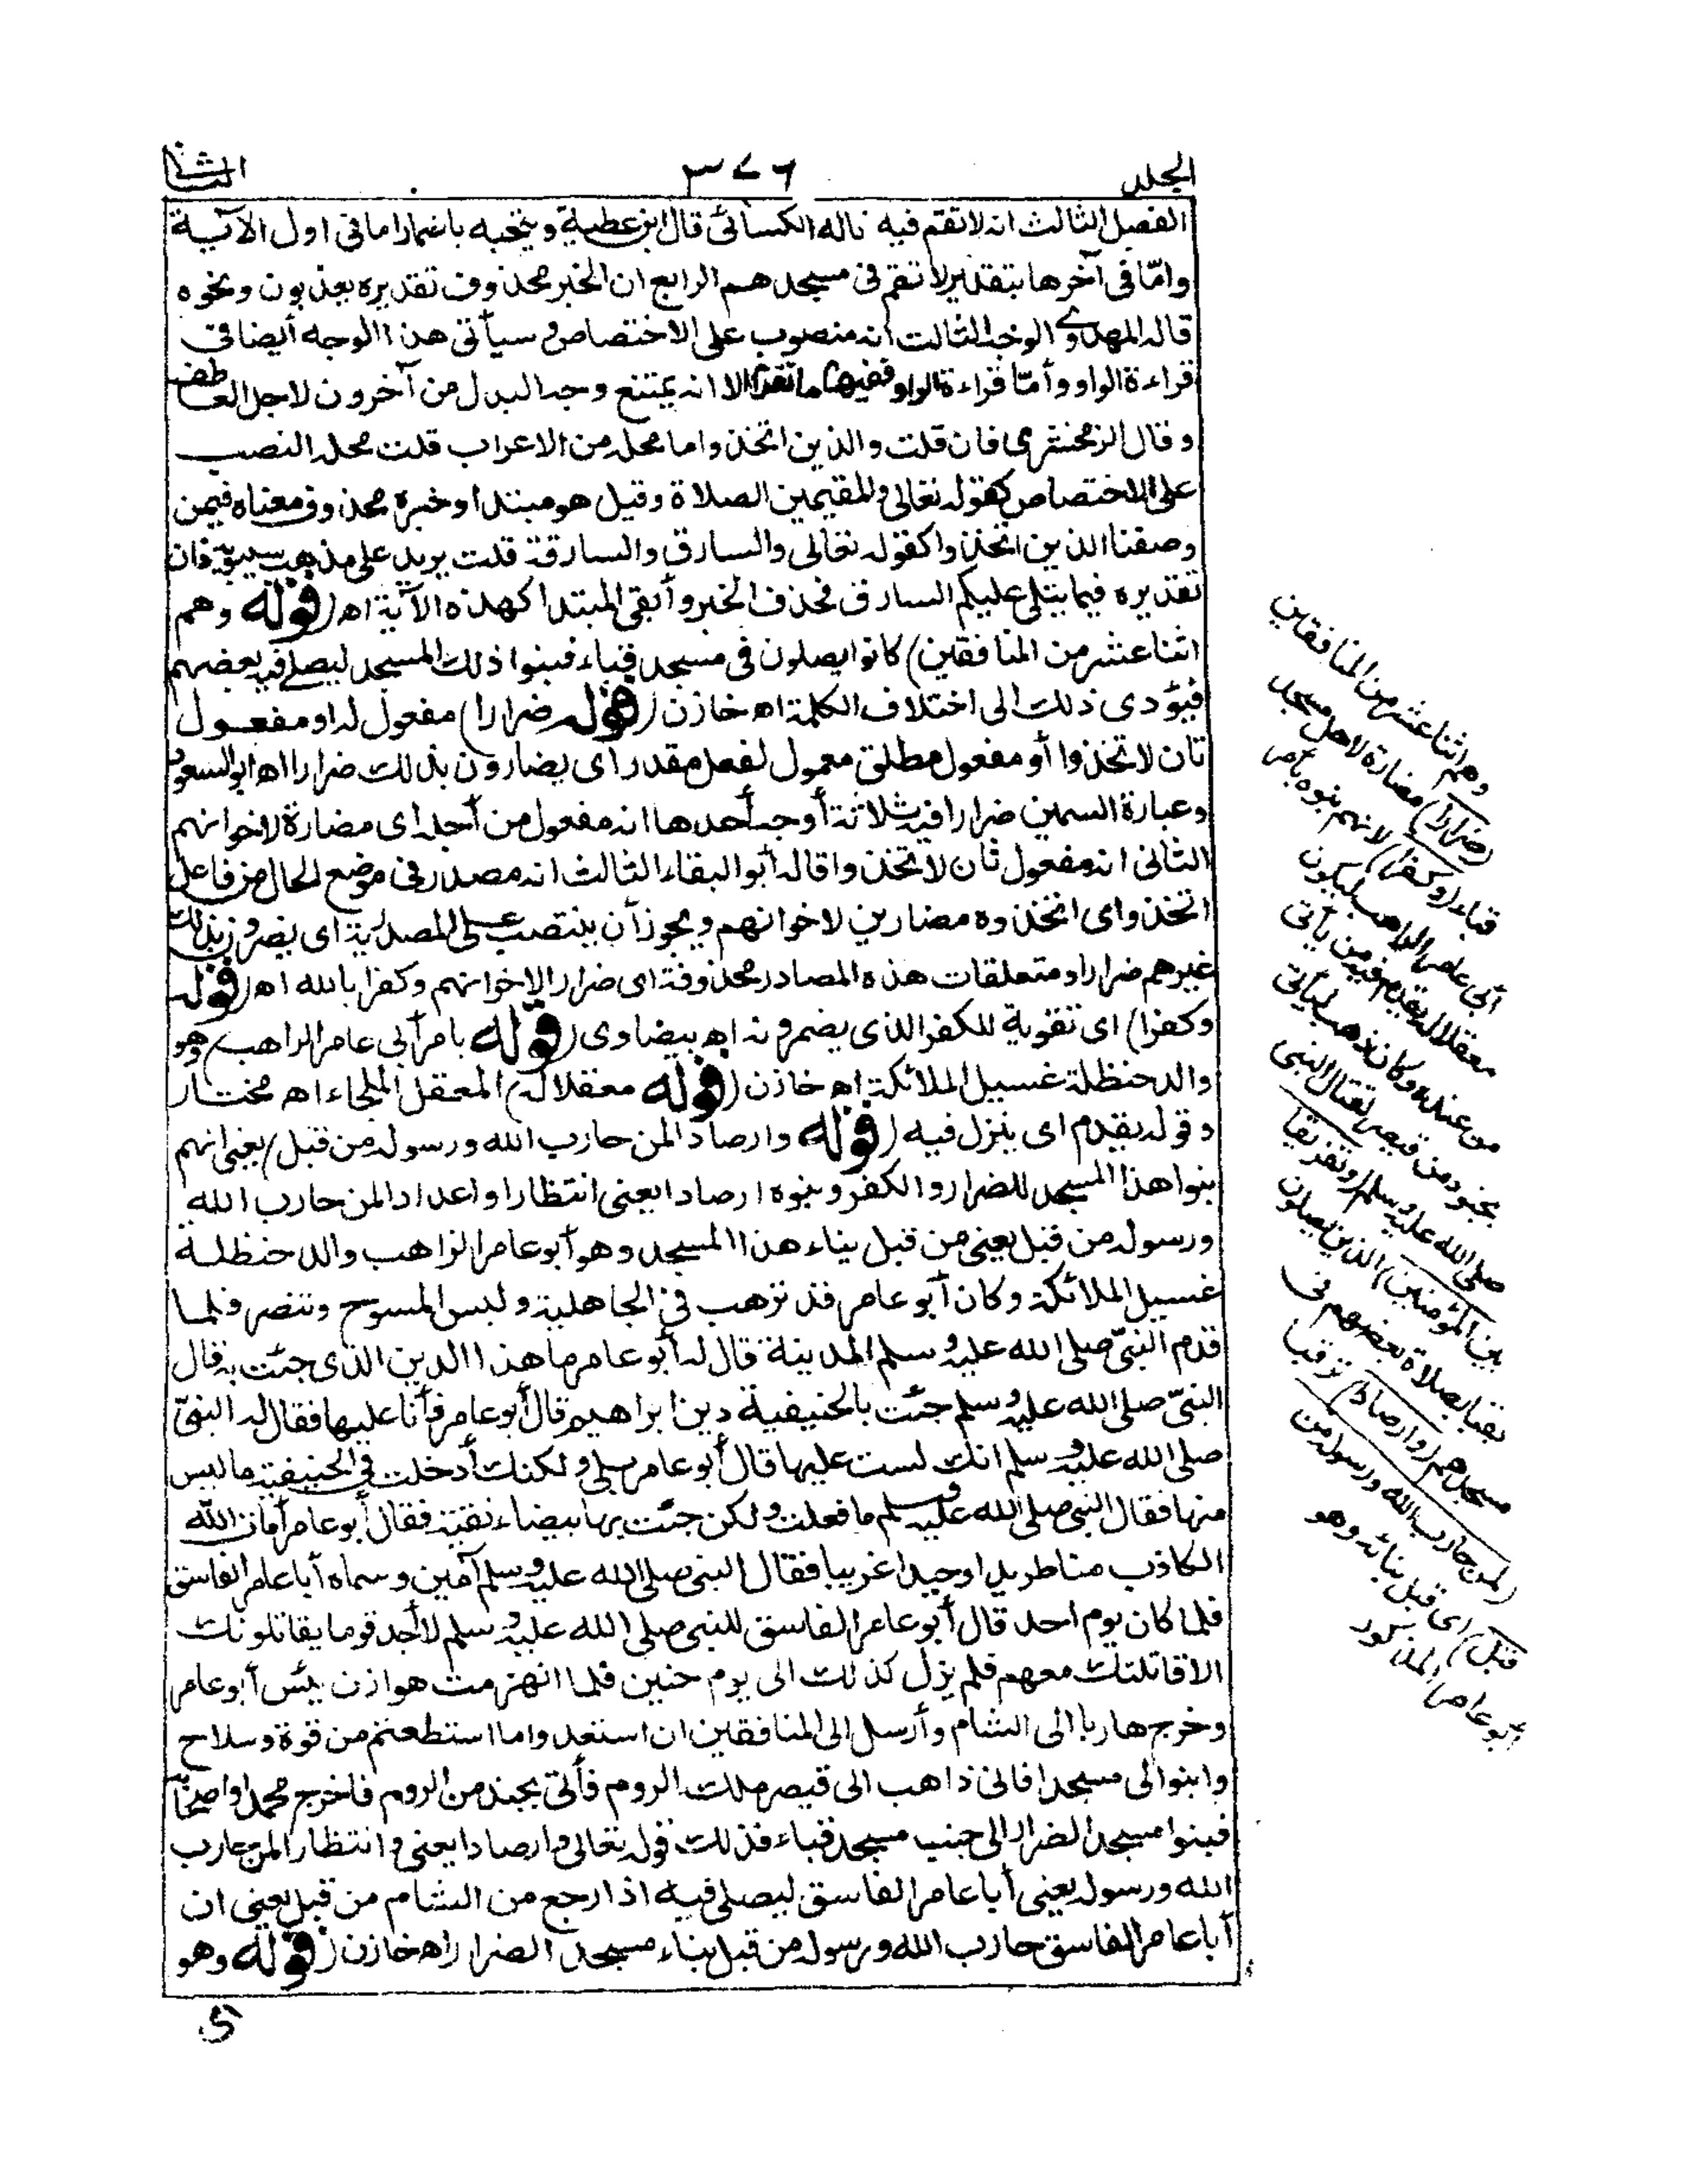 الجلد
٣٧٦
الثانى
الفصل الثالث انه لا تقم فيه قاله الكسائى قال ابن عطية ويتجه باضمار اما فى اول الآية
وامّا فى آخرها بتقدير لا تقم فى مسجدهم الرابع ان الخبر محذوف تقديره يعذبون ونحوه
قاله المهدوى الوجه الثالث انه منصوب على الاختصاص وسيأتى هذا الوجه أيضا فى
قراءة الواو وأمّا قراءة الواو ففيها ما تقدم الا انه يمتنع وجه البدل من آخرون لاجل العاطف
وقال الزمخشرى فان قلت والذين اتخذوا ما محله من الاعراب قلت محله النصب
على الاختصاص كقوله تعالى والمقيمين الصلاة وقيل هو مبتدا وخبره محذوف معناه فيمن
وصفنا الذين اتخذوا كقوله تعالى والسارق والسارقة قلت يريد على مذهب سيبويه فان
تقديره فيما يتلى عليكم السارق فحذف الخبر وأبقى المبتدا كهذه الآية اه (قوله وهم
اثنا عشر من المنافقين) كانوا يصلون فى مسجد قباء فبنوا ذلك المسجد ليصلى فيه بعضهم
فيؤدى ذلك الى اختلاف الكلمة اه خازن (قوله ضرارا) مفعول له او مفعول
ثان لاتخذوا أو مفعول مطلق معمول لفعل مقدر اى يضارون بذلك ضرارا اه ابو السعود
وعبارة السمين ضرارا فيه ثلاثة أوجه أحدها انه مفعول من أجله اى مضارة لاخوانهم
الثانى انه مفعول ثان لاتخذوا قاله أبو البقاء الثالث انه مصدر فى موضع الحال من فاعل
اتخذوا اى اتخذوه مضارين لاخوانهم ويجوز أن ينتصب على المصدرية اى يضرون بذلك
غيرهم ضرارا ومتعلقات هذه المصادر محذوفة اى ضرارا لاخوانهم وكفرا بالله اه (قوله
وكفرا) اى تقوية للكفر الذى يضمرونه اه بيضاوى (قوله بامر أبى عامر الراهب) وهو
والد حنظلة غسيل الملائكة اه خازن (قوله معقلا له) المعقل الملجاء اه مختار
وقوله يقدم اى ينزل فيه (قوله وارصادا لمن حارب الله ورسوله من قبل) يعنى انهم
بنوا هذا المسجد للضرار والكفر وبنوه ارصادا يعنى انتظارا واعدادا لمن حارب الله
ورسوله من قبل يعنى من قبل بناء هذا المسجد وهو أبو عامر الراهب والد حنظلة
غسيل الملائكة وكان أبو عامر قد ترهب فى الجاهلية ولبس المسوح وتنصر فلما
قدم النبىّ صلى الله عليه وسلم المدينة قال له أبو عامر ما هذا الدين الذى جئت به قال
النبىّ صلى الله عليه وسلم جئت بالحنيفية دين ابراهيم قال أبو عامر فأنا عليها فقال له النبىّ
صلى الله عليه وسلم انك لست عليها قال أبو عامر بلى ولكنك أدخلت فى الحنيفية ما ليس
منها فقال النبى صلى الله عليه وسلم ما فعلت ولكن جئت بها بيضاء نقية فقال أبو عامر أمات الله
الكاذب منا طريدا وحيدا غريبا فقال النبى صلى الله عليه وسلم آمين وسماه أبا عامر الفاسق
فلما كان يوم احد قال أبو عامر الفاسق للنبى صلى الله عليه وسلم لا أجد قوما يقاتلونك
الا قاتلتك معهم فلم يزل كذلك الى يوم حنين فلما انهزمت هوازن يئس أبو عامر
وخرج هاربا الى الشام وأرسل الى المنافقين ان استعدوا ما استطعتم من قوة وسلاح
وابنوا لى مسجدا فانى ذاهب الى قيصر ملك الروم فأتى بجند من الروم فاخرج محمدا واصحابه
فبنوا مسجد الضرار الى جنب مسجد قباء فذلك قوله تعالى وارصادا يعنى وانتظارا لمن حارب
الله ورسوله يعنى أبا عامر الفاسق ليصلى فيه اذا رجع من الشام من قبل يعنى ان
أبا عامر الفاسق حارب الله ورسوله من قبل بناء مسجد الضرار اه خازن (قوله وهو
وهم اثنا عشر من المنافقين
(ضرارا) مضارة لاهل مسجد
قباء (وكفرا) لانهم بنوه بأمر
أبى عامر الراهب ليكون
معقلا له يقدم فيه من يأتى
من عنده وكان ذهب ليأتى
بجنود من قيصر لقتال النبى
صلى الله عليه وسلم (وتفريقا
بين المؤمنين) الذين يصلون
بقبا بصلاة بعضهم فى
مسجدهم (وارصادا) ترقبا
(لمن حارب الله ورسوله من
قبل) اى قبل بنائه وهو
أبو عامر المذكور